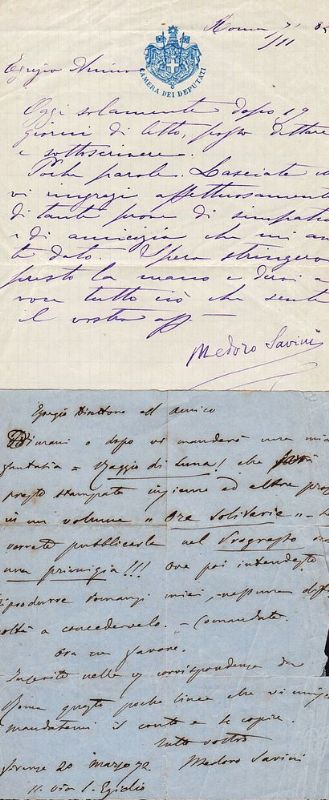 Roma
CAMERA DEI DEPUTATI
Egregio Amico
Oggi solamente dopo 19
giorni di letto, posso dettare
e sottoscrivere.
Poche parole. Lasciate
vi ringrazi affettuosamente
di tante prove di simpatia
e di amicizia che mi
te dato. Spero stringervi
presto la mano e dirvi a
voce tutto ciò che sente
il vostro aff
Medoro Savini
Egregio Direttore ed Amico
Dimani o dopo vi manderò una mia
fantasia = Raggio di Luna! che
presto stampata insieme ad altre
in un volume = Ore Solitarie =
vorrete pubblicarla nel Progresso
una primizia!!! Ove poi intendeste
riprodurre romanzi miei, nessuna
coltà a concedervelo. - Comandate.
Ora un favore.
Inserite nella corrispondenza da
Roma queste poche linee che vi
mandatemi il conto e le copie.
Tutto vostro
Firenze 20 marzo 72 Medoro Savini
Via S. Egidio